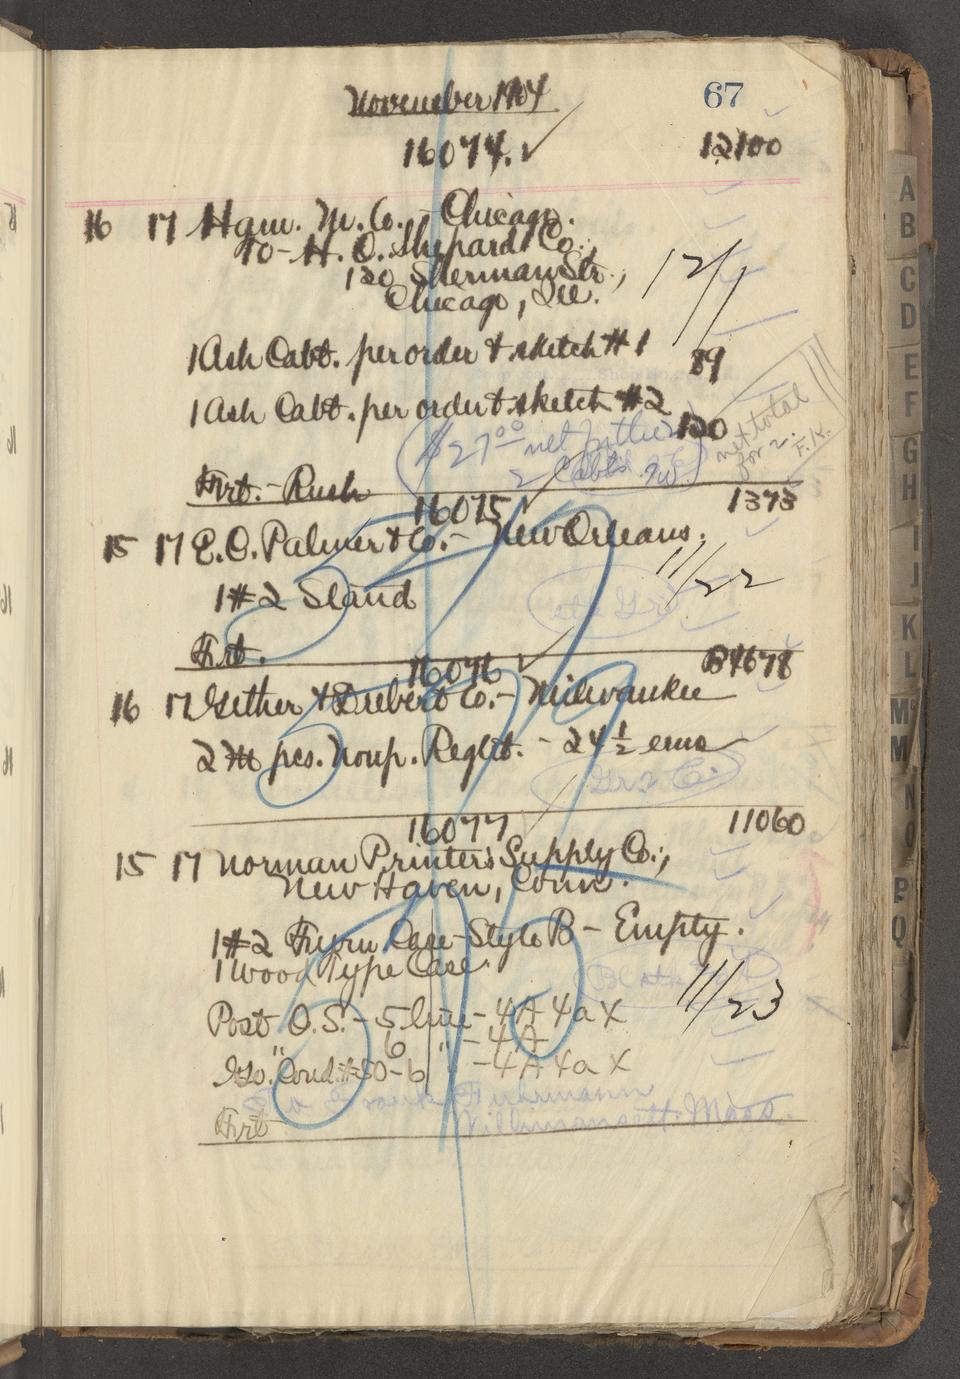 November 1904
67
16074. ✓
12100
16 17 Ham. M. Co. - Chicago.
To - H. O. Shepard Co.,
120 Sherman Str.,
Chicago, Ill.
12/1
1 Ash Cabt. per order & sketch #1 89
1 Ash Cabt. per order & sketch #2 120
$27.00 net
2 Cabts.
net total
for 2.
F.K.
Frt. - Rush
16075 ✓ 1373
15 17 E. C. Palmer & Co. - New Orleans.
11/22
1 #2 Stand
Frt.
16076 ✓ 84678
16 17 Gether & Drebert Co. - Milwaukee
2 M pcs. Nonp. Reglt. - 24 1/2 ems
16077 11060
15 17 Norman Printers Supply Co.,
New Haven, Conn.
1 #2 Style B - Empty.
1 Wood Type Case
11/23
Post O.S. - 5 line - 4A 4a X
" 6 " - 4A
Cond. #50 - 6 " - 4A 4a X
Willimansett. Mass.
Frt
A
B
C
D
E
F
G
H
I
J
K
L
M
M
N
O
P
Q